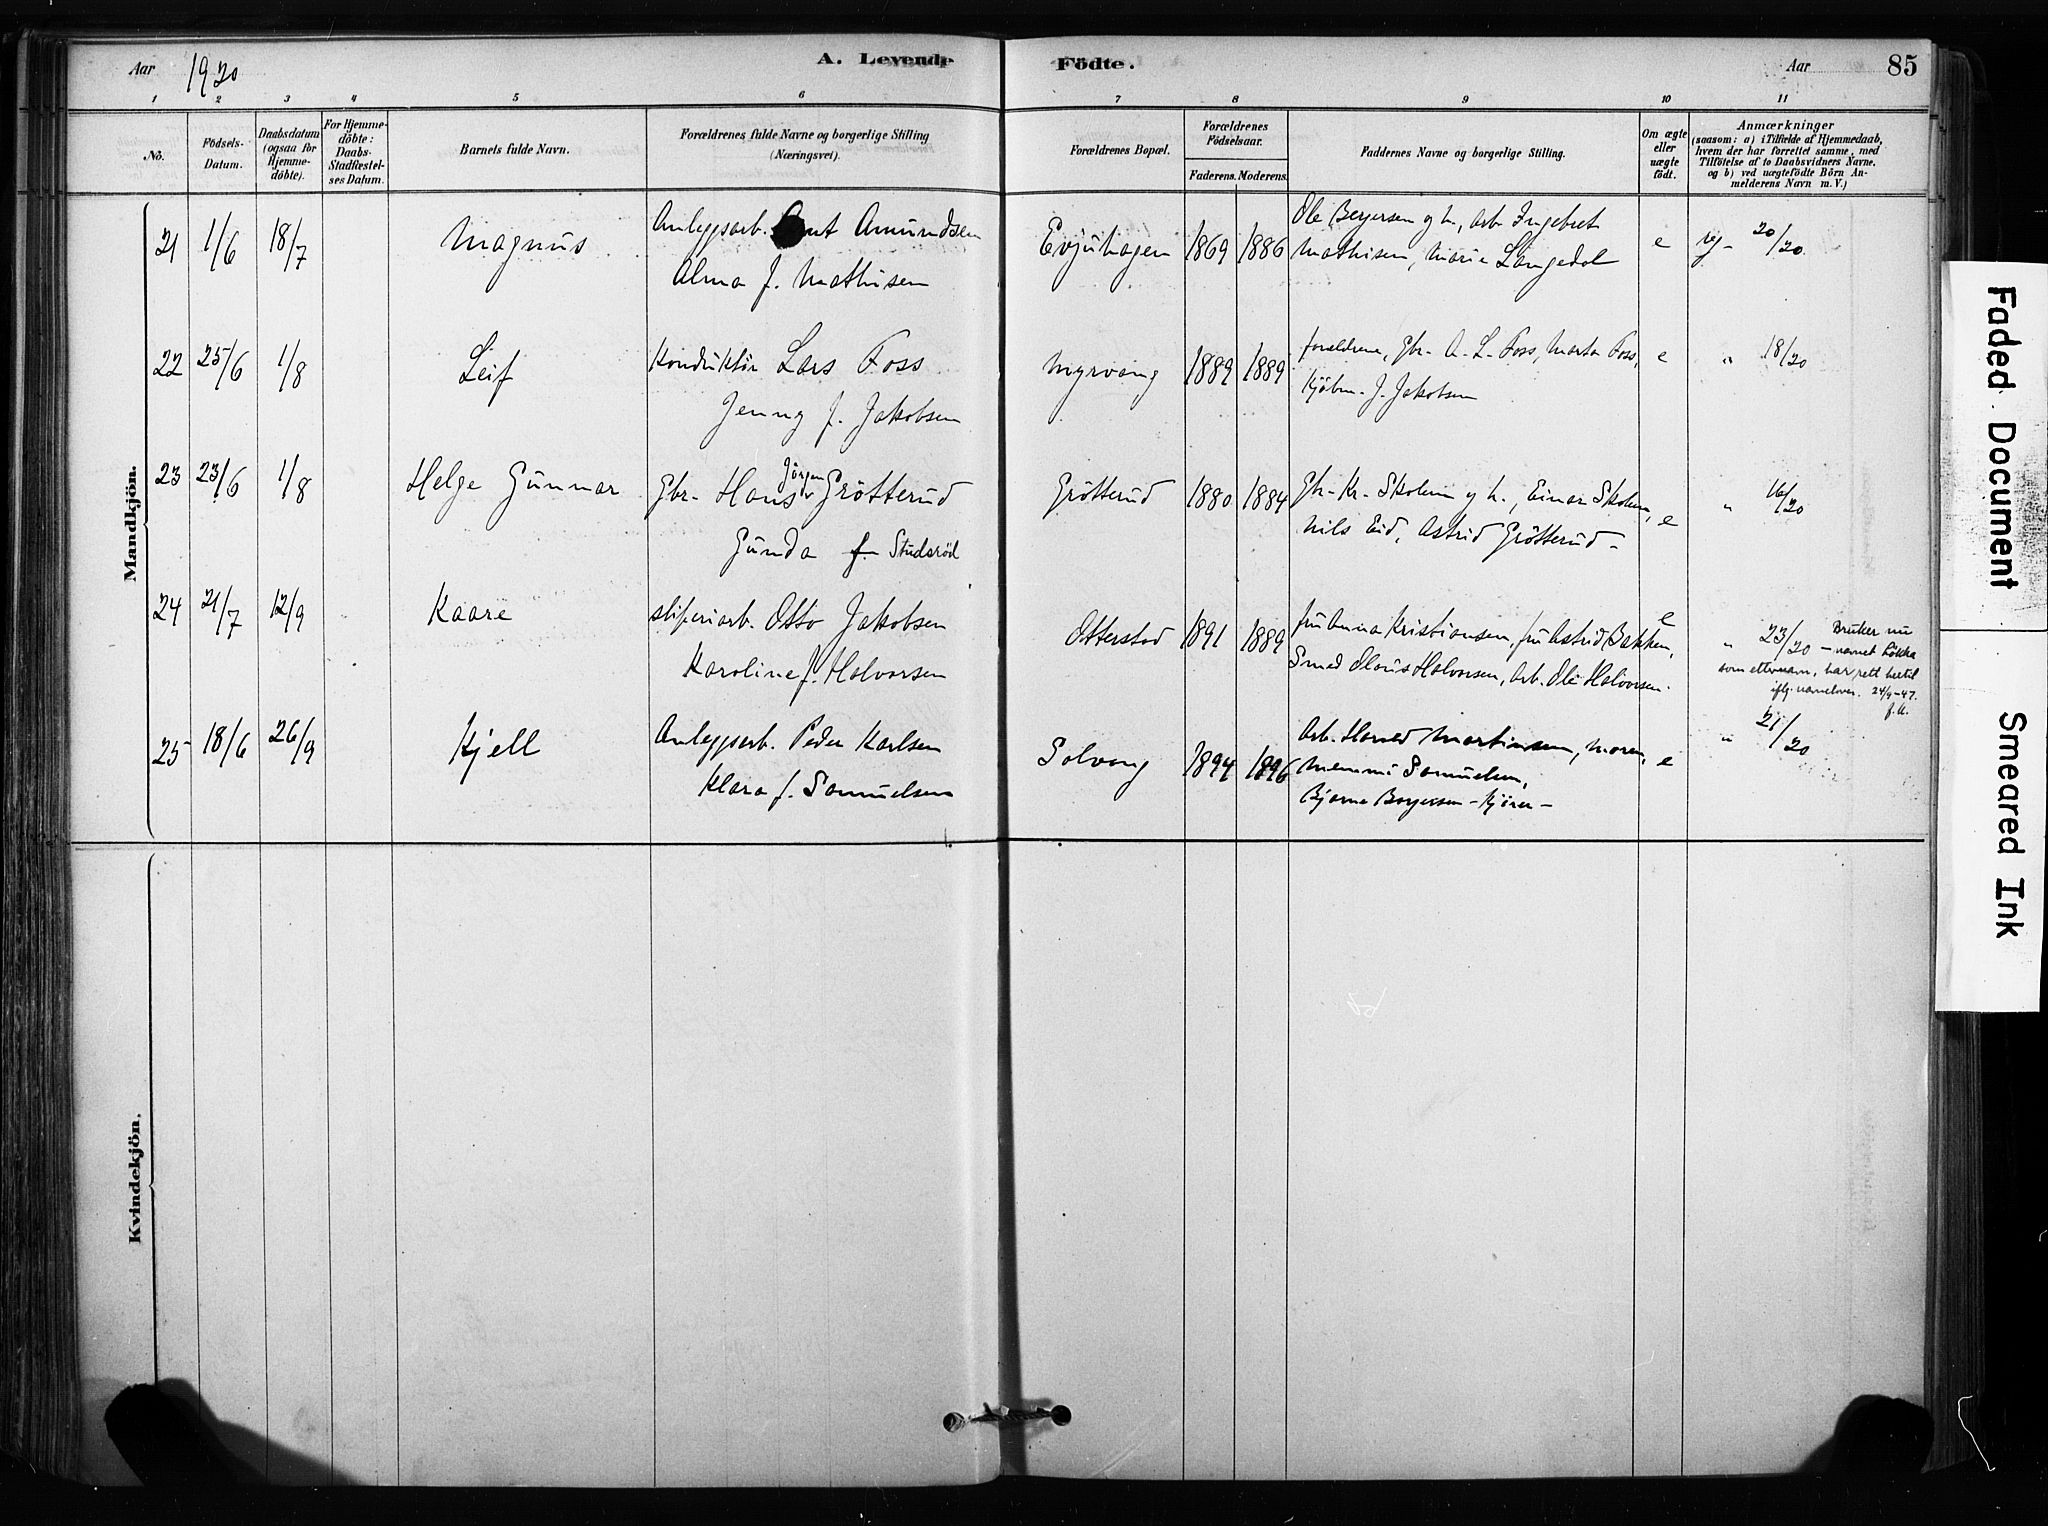 Aar 1920 A. Levende Födte. Aar 85
1 2 3 4 5 6 7 8 9 10 11
No.
Födsels-
Datum.
Daabsdatum
(ogsaa for
Hjemme-
döbte).
For Hjemme-
döbte:
Daabs-
Stadfæstel-
ses Datum.
Barnets fulde Navn.
Forældrenes fulde Navne og borgerlige Stilling
(Næringsvei).
Forældrenes Bopæl.
Forældrenes
Födselsaar.
Faderens. Moderens.
Faddernes Navne og borgerlige Stilling.
Om ægte
eller
uægte
födt.
Anmærkninger
(saasom: a) i Tilfælde af Hjemmedaab,
hvem der har forrettet samme, med
Tilföielse af to Daabsvidners Navne.
og b) ved uægtefödte Börn An-
melderens Navn m. V.)
Mandkjön.
21 1/6 18/7 Magnus Anleggsarb. Amundsen Evjuhagen 1869 1886 Ole Bergersen og h., Arb. Ingebret e reg- 20/20
Alma f. Mathisen Mathisen, Marie Langedal
22 25/6 1/8 Leif Konduktör Lars Foss Myrvang 1889 1889 foreldrene, Gbr. A. L. Foss, Marta Foss, e " 18/20
Jenny f. Jakobsen Kjöbm. J. Jakobsen
23 23/6 1/8 Helge Gunnar Gbr- Hans Jörgen Grötterud Grötterud 1880 1884 Gbr- Kr. Skolem og h., Einar Skolem, e " 16/20
Gunda f. Studsröd Nils Eid, Astrid Grötterud-
24 21/7 12/9 Kaare sliperiarb. Otto Jakobsen Otterstad 1891 1889 fru Anna Kristiansen, fru Astrid Bakken, e " 23/20 - Bruker nu
Karoline f. Halvorsen Smed Halvorsen, Arb. Ole Halvorsen. navnet Løkka
som etternavn, har rett hertil
iflg. navneloven. 24/9-47.
25 18/6 26/9 Kjell Anleggsarb. Peder Karlsen Solvang 1894 1896 Arb. Martinsen, moren, e " 21/20
Klara f. Samuelsen Memmi Samuelsen,
Bjarne Borgersen - Kjörer-
Kvindekjön.
Faded Document
Smeared Ink